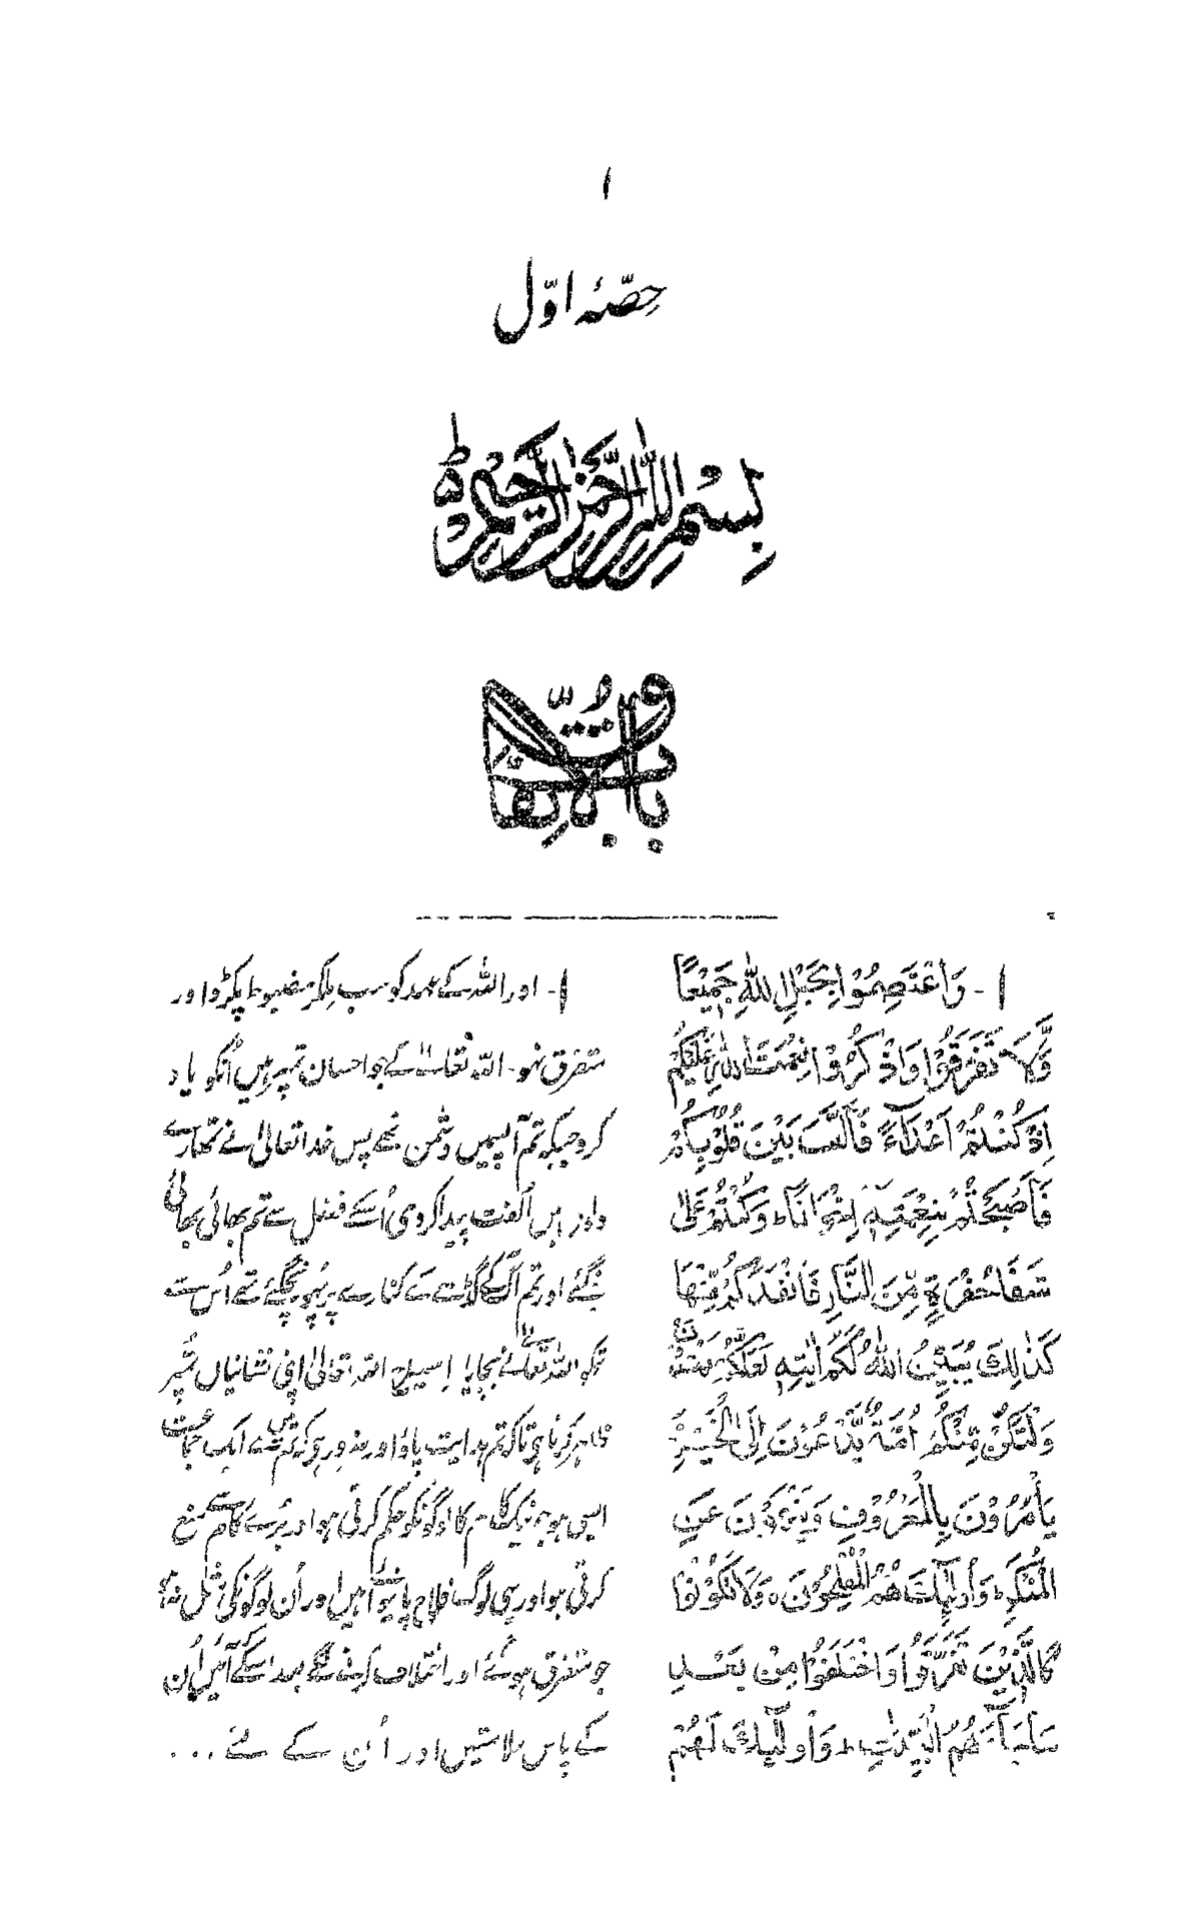 ۱
حصّۂ اوّل
بِسْمِ اللهِ الرَّحْمٰنِ الرَّحِيْمِ ط
بابُ الاتفاق
۱- وَاعْتَصِمُوْا بِحَبْلِ اللهِ جَمِيْعًا
وَّلَا تَفَرَّقُوْا وَاذْكُرُوْا نِعْمَتَ اللهِ عَلَيْكُمْ
اِذْ كُنْتُمْ اَعْدَآءً فَاَلَّفَ بَيْنَ قُلُوْبِكُمْ
فَاَصْبَحْتُمْ بِنِعْمَتِهٖ اِخْوَانًا وَكُنْتُمْ عَلٰى
شَفَا حُفْرَةٍ مِّنَ النَّارِ فَاَنْقَذَكُمْ مِّنْهَا
كَذٰلِكَ يُبَيِّنُ اللهُ لَكُمْ اٰيٰتِهٖ لَعَلَّكُمْ تَهْتَدُوْنَ
وَلْتَكُنْ مِّنْكُمْ اُمَّةٌ يَّدْعُوْنَ اِلَى الْخَيْرِ
يَاْمُرُوْنَ بِالْمَعْرُوْفِ وَيَنْهَوْنَ عَنِ
الْمُنْكَرِ وَاُولٰٓئِكَ هُمُ الْمُفْلِحُوْنَ ہ وَلَا تَكُوْنُوْا
كَالَّذِيْنَ تَفَرَّقُوْا وَاخْتَلَفُوْا مِنْ بَعْدِ
مَا جَآءَهُمُ الْبَيِّنٰتُ وَاُولٰٓئِكَ لَهُمْ
۱- اور اللہ کے عہد کو سب ملکر مضبوط پکڑو اور
متفرق نہو۔ اللہ تعالےٰ کے جو احسان تمپر ہیں اُنکو یاد
کرو جبکہ تم آپسمیں دشمن تھے پس خدا تعالیٰ نے تمھارے
دلوں میں اُلفت پیدا کردی اُسکے فضل سے تم بھائی بھائی
بنگئے اور تم آگ کے گڑھے کے کنارے پر پہونچگئے تھے اُس سے
تمکو اللہ تعالےٰ نے بچایا اسیطرح اللہ تعالیٰ اپنی نشانیاں تمپر
ظاہر کرتا ہے تاکہ تم ہدایت پاؤ اور ضرور ہے کہ تم میں سے ایک جماعت
ایسی ہو جو نیک کام کا لوگونکو حکم کرتی ہو اور بُرے کام سے منع
کرتی ہو اور یہی لوگ فلاح پانیوالے ہیں اور اُن لوگونکی مثل نہو
جو متفرق ہوگئے اور اختلاف کرنے لگے بعد اسکے آئیں اُن
کے پاس علامتیں اور اُن کے لئے ...